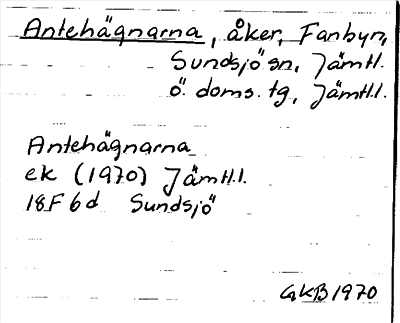 Antehägnarna, åker, Fanbyn,
Sundsjö sn, Jämtl.
ö. doms. tg, Jämtl.l.
Antehägnarna
ek (1970) Jämtl.l.
18F6d Sundsjö
GKB1970